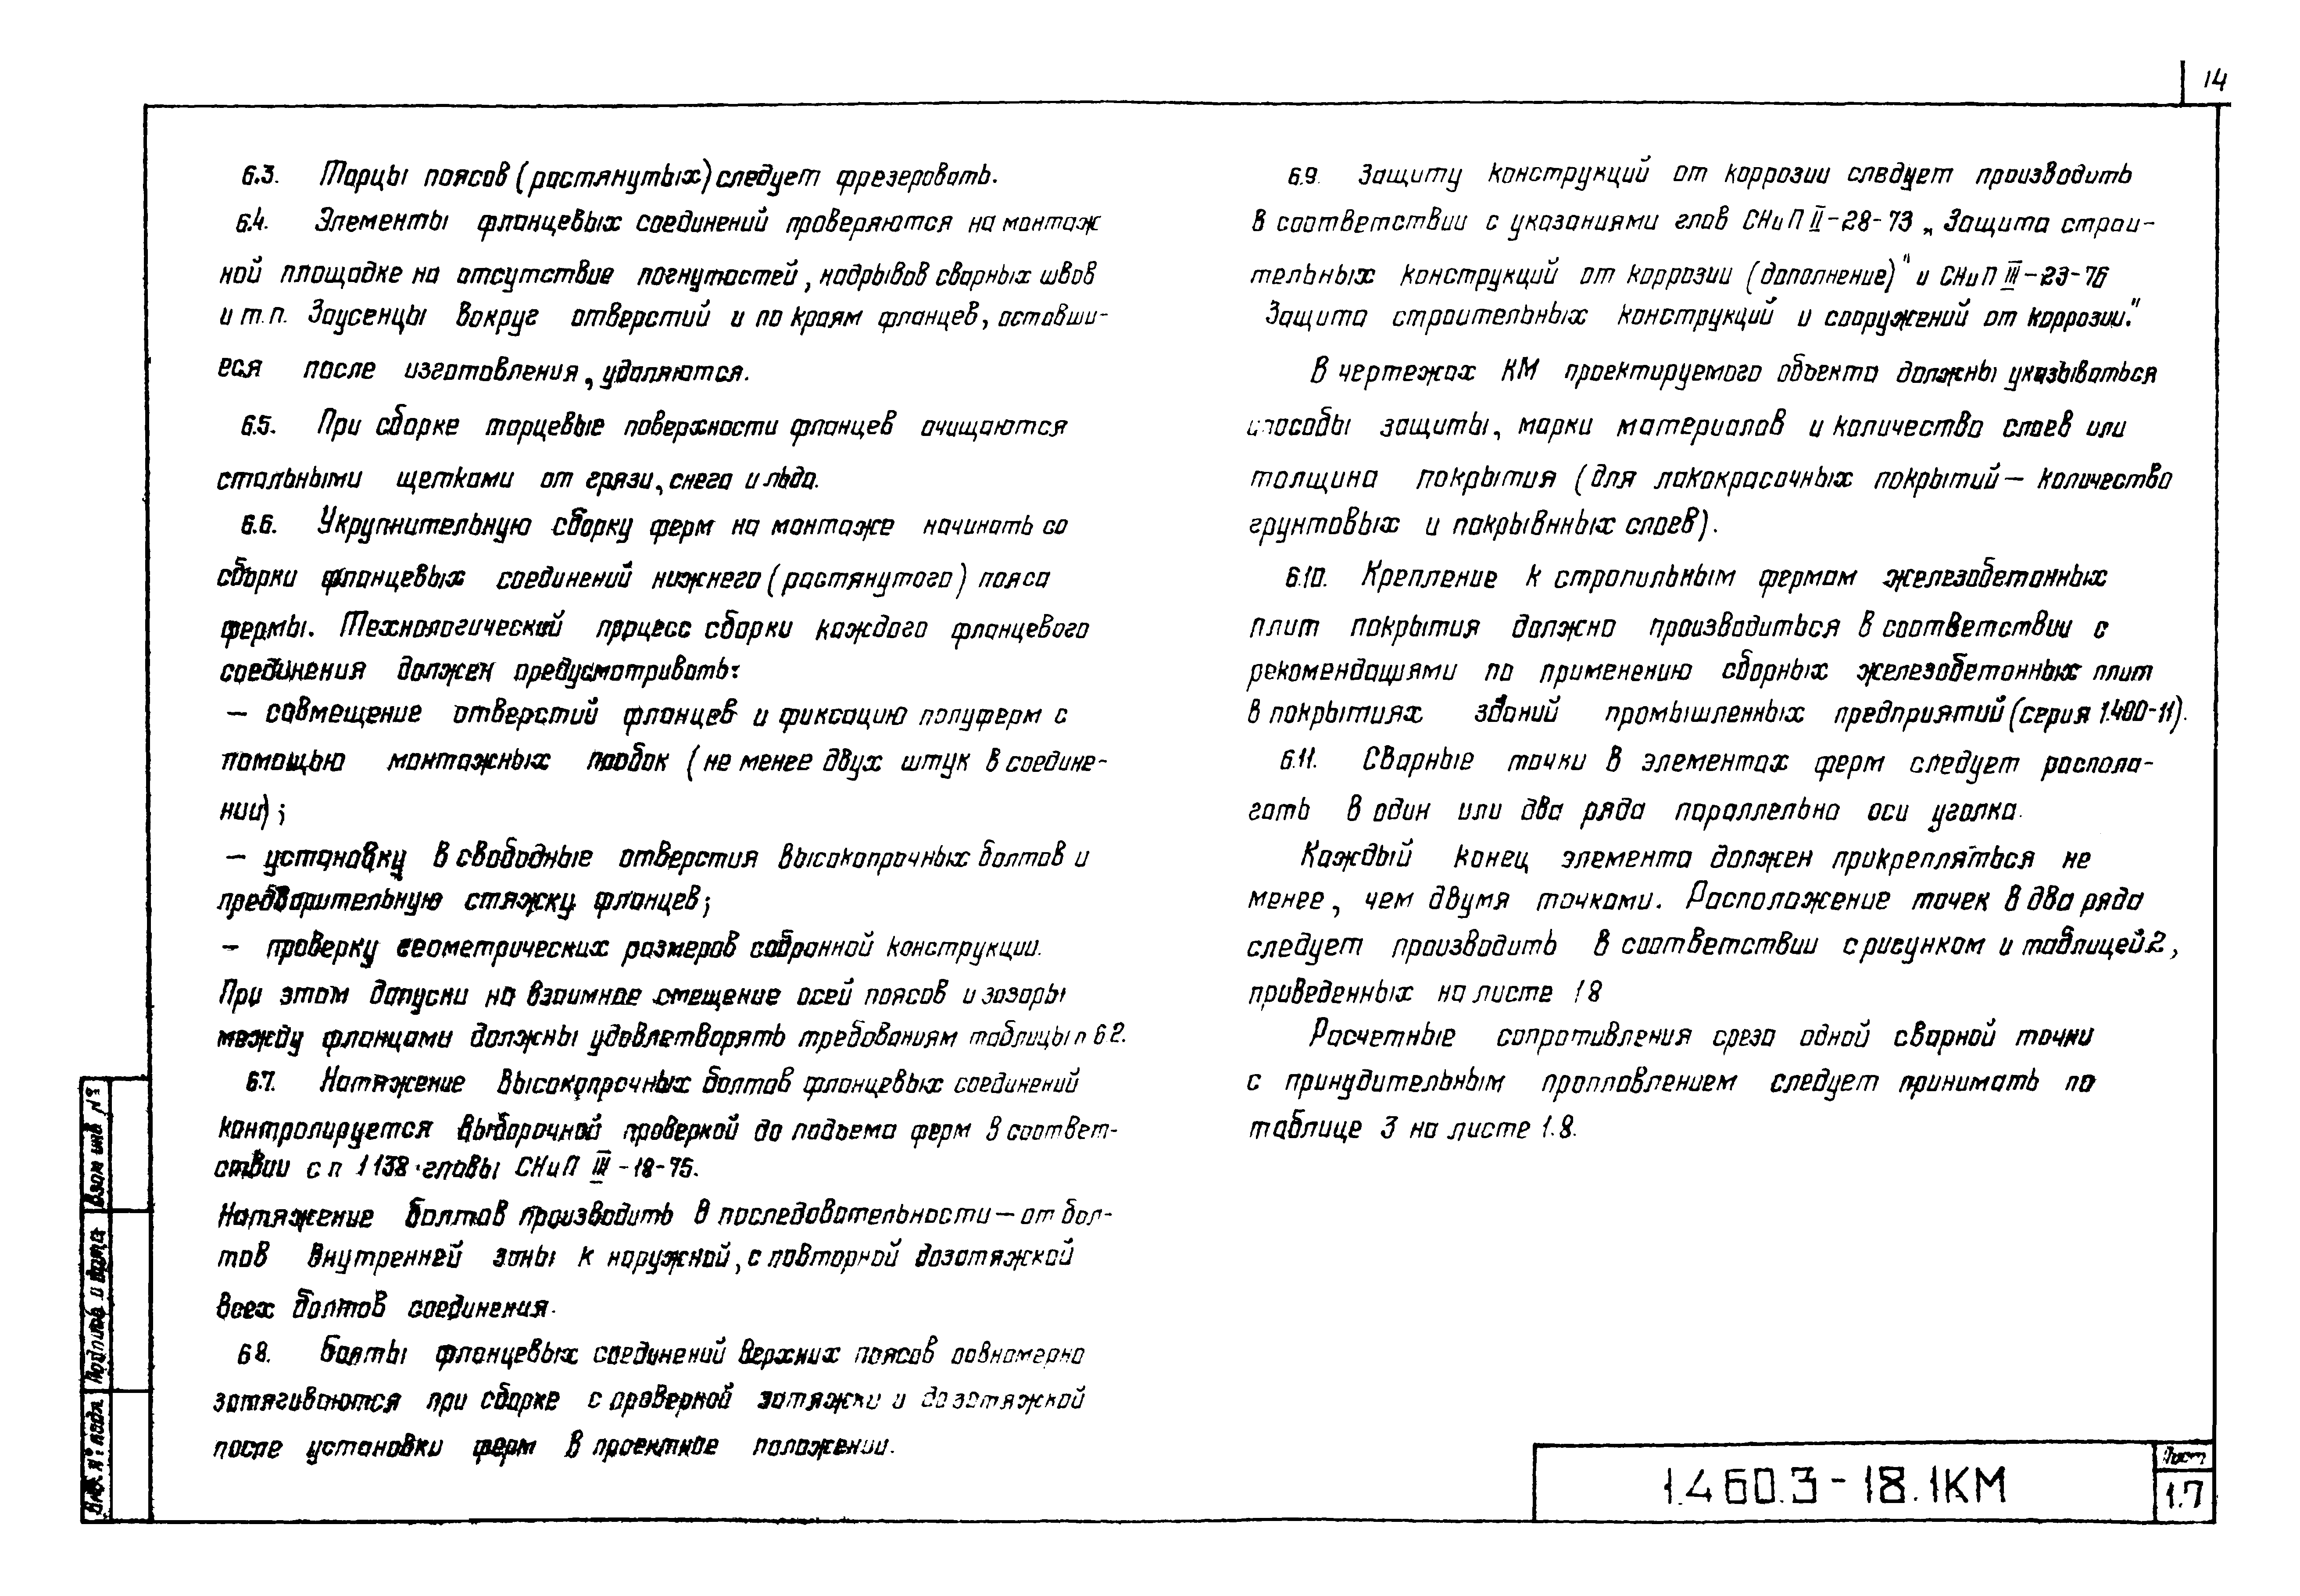 14
6.3. Торцы поясов (растянутых) следует фрезеровать.
6.4. Элементы фланцевых соединений проверяются на монтаж
ной площадке на отсутствие погнутостей, надрывов сварных швов
и т.п. Заусенцы вокруг отверстий и по краям фланцев, оставши-
еся после изготовления, удаляются.
6.5. При сборке торцевые поверхности фланцев очищаются
стальными щетками от грязи, снега и льда.
6.6. Укрупнительную сборку ферм на монтаже начинать со
сборки фланцевых соединений нижнего (растянутого) пояса
фермы. Технологический процесс сборки каждого фланцевого
соединения должен предусмотривать:
– совмещение отверстий фланцев и фиксацию полуферм с
помощью монтажных пробок (не менее двух штук в соедине-
нии);
– установку в свободные отверстия высокопрочных болтов и
предварительную стяжку фланцев;
– проверку геометрических размеров собранной конструкции.
При этом допуски на взаимное смещение осей поясов и зазоры
между фланцами должны удовлетворять требованиям таблицы п 6.2.
6.7. Натяжение высокопрочных болтов фланцевых соединений
контролируется выборочной проверкой до подъема ферм в соответ-
ствии с п 1 138 главы СНиП III-18-75.
Натяжение болтов производить в последовательности – от бол-
тов внутренней зоны к наружной, с повторной дозатяжкой
всех болтов соединения.
6 8. Болты фланцевых соединений верхних поясов равномерно
затягиваются при сборке с проверкой затяжки и дозатяжкой
после установки ферм в проектное положении.
6.9. Защиту конструкций от коррозии следует производить
в соответствии с указаниями глав СНиП II-28-73 „Защита строи-
тельных конструкций от коррозии (дополнение)" и СНиП III-23-76
Защита строительных конструкций и сооружений от коррозии."
В чертежах КМ проектируемого объекта должны указываться
способы защиты, марки материалов и количество слоев или
толщина покрытия (для лакокрасочных покрытий – количество
грунтовых и покрывнных слоев).
6.10. Крепление к стропильным фермам железобетонных
плит покрытия должно производиться в соответствии с
рекомендациями по применению сборных железобетонных плит
в покрытиях зданий промышленных предприятий (серия 1.400-11).
6.11. Сварные точки в элементах ферм следует распола-
гать в один или два ряда параллельно оси уголка.
Каждый конец элемента должен прикрепляться не
менее, чем двумя точками. Расположение точек в два ряда
следует производить в соответствии с рисунком и таблицей 2,
приведенных на листе 1 8
Расчетные сопротивления среза одной сварной точки
с принудительным проплавлением следует принимать по
таблице 3 на листе 1.8.
Взам инв №
Подпись и дата
Инв. № подл
1.460.3-18.1КМ
Лист
1.7